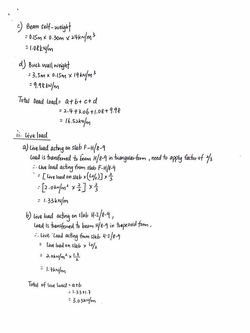 c) Beam self-weight
= 0.15m x 0.30m x 24kN/m³
= 1.08kN/m
d) Brick wall weight
= 3.5m x 0.15m x 19kN/m³
= 9.98kN/m
Total Dead Load = a+b+c+d
= 2.4+3.06+1.08+9.98
= 16.52kN/m
ii. Live load
a) Live load acting on slab F-H/8-9
Load is transferred to beam H/8-9 in triangular form, need to apply factor of 2/3
∴ Live load acting from slab F-H/8-9
= [Live load on slab x (Lx/2)] x 2/3
= [2.0kN/m² x 2/2] x 2/3
= 1.33kN/m
b) Live load acting on slab H-I/8-9,
Load is transferred to beam H/8-9 in trapezoid form,
∴ Live load acting from slab H-I/8-9
= Live load on slab x Lx/2
= 2.0kN/m² x
= 1.7kN/m
Total of live load = a+b
= 1.33+1.7
= 3.03kN/m